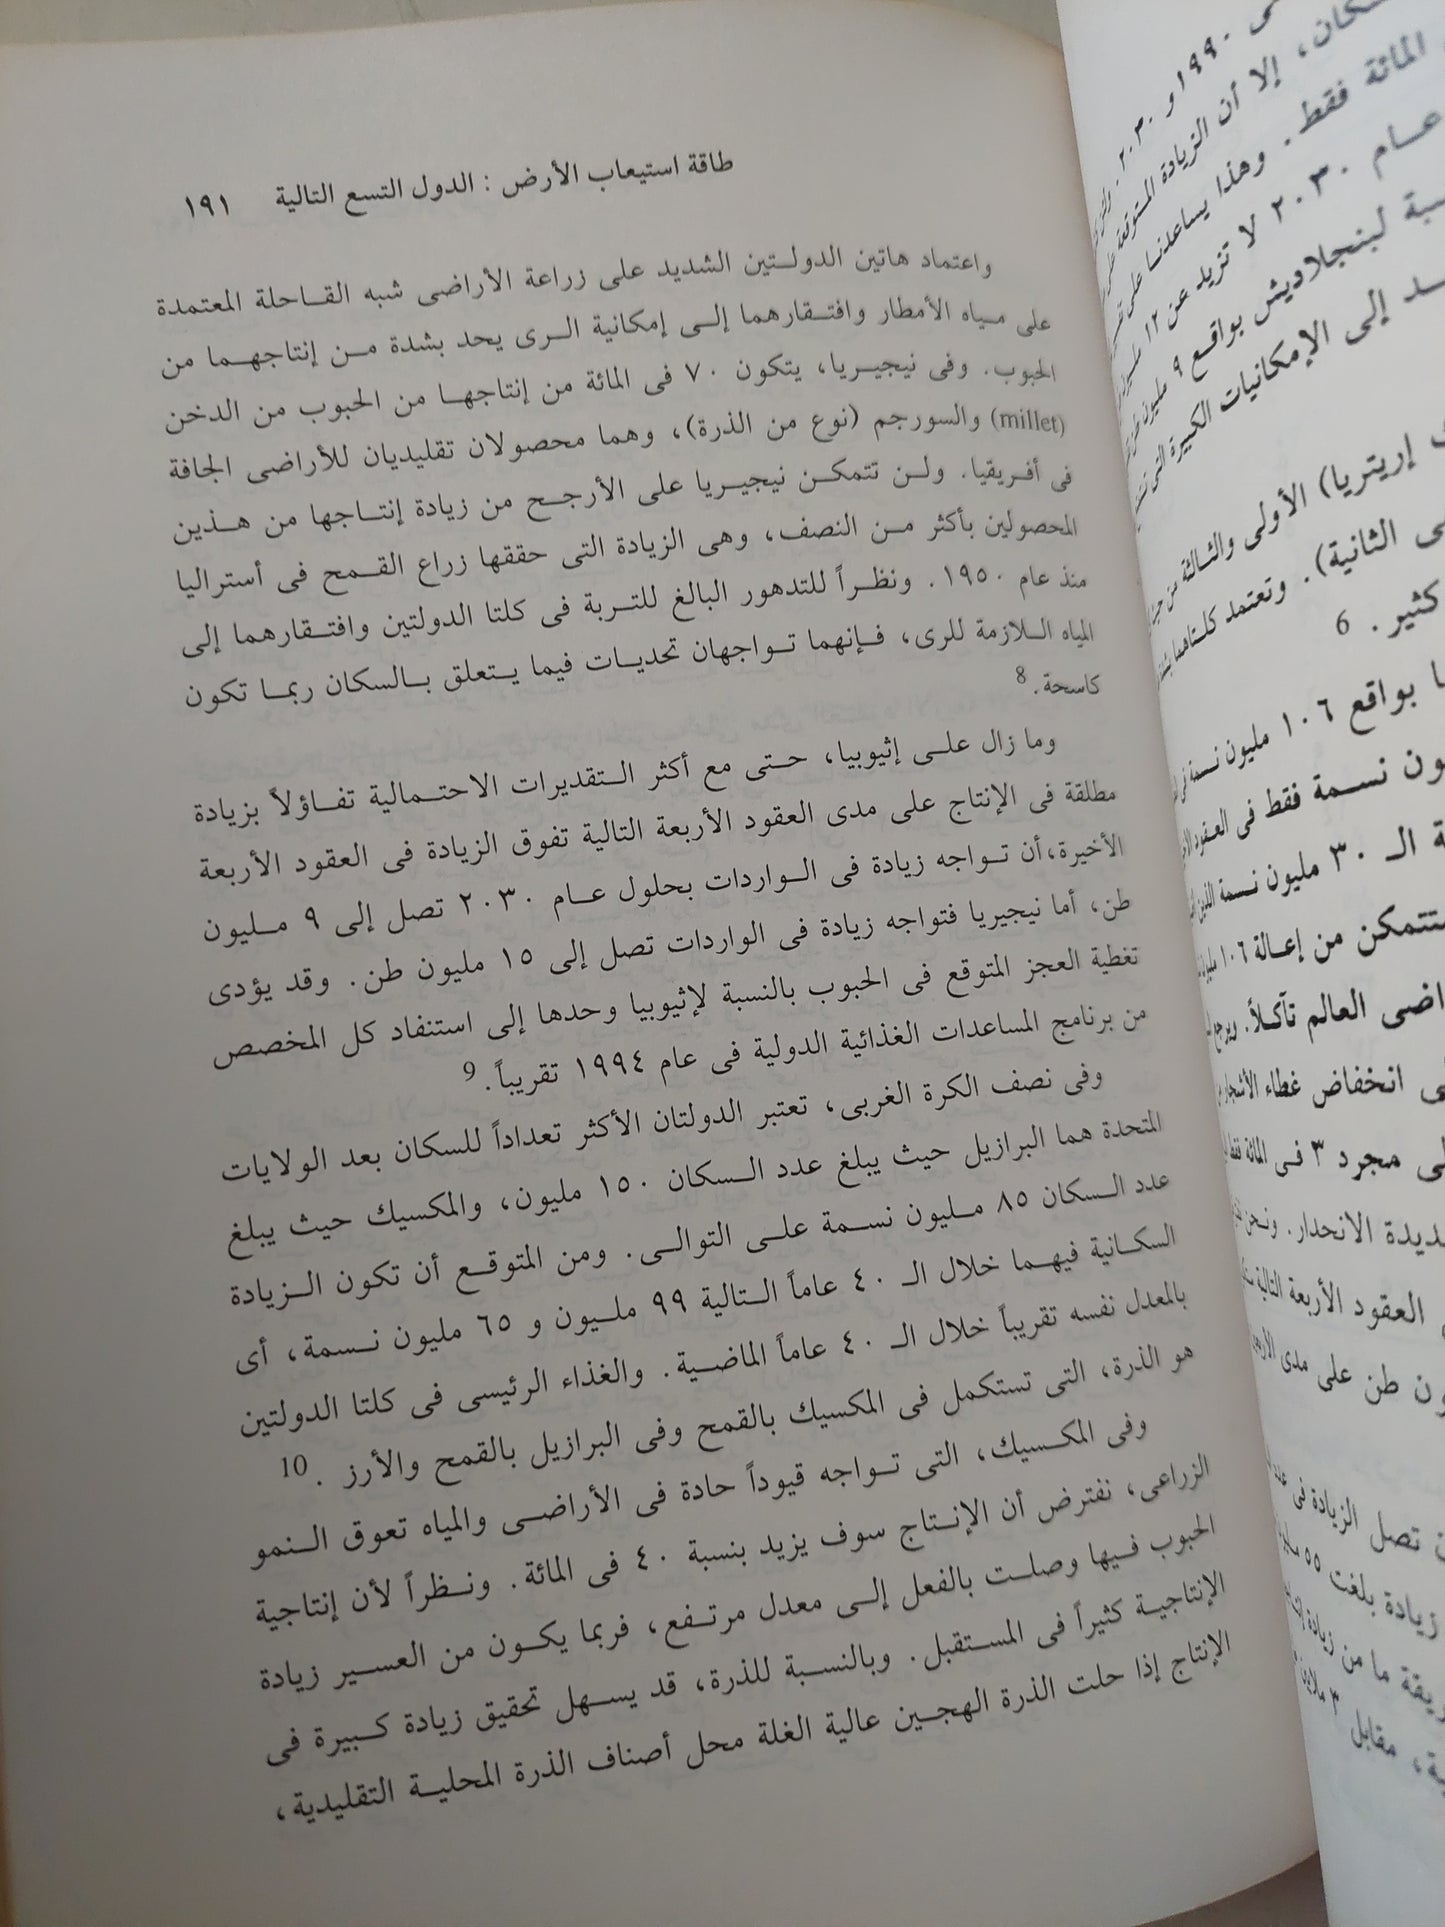 طاقة استيعاب الأرض : الدول التسع التالية ١٩١
واعتماد هاتين الدولتين الشديد على زراعة الأراضى شبه القاحلة المعتمدة
على مياه الأمطار وافتقارهما إلى إمكانية الرى يحد بشدة من إنتاجهما من
الحبوب. وفى نيجيريا، يتكون ٧٠ فى المائة من إنتاجها من الحبوب من الدخن
(millet) والسورجم (نوع من الذرة)، وهما محصولان تقليديان للأراضى الجافة
فى أفريقيا. ولن تتمكن نيجيريا على الأرجح من زيادة إنتاجها من هذين
المحصولين بأكثر من النصف، وهى الزيادة التى حققها زراع القمح فى أستراليا
منذ عام ١٩٥٠. ونظراً للتدهور البالغ للتربة فى كلتا الدولتين وافتقارهما إلى
المياه اللازمة للرى، فإنهما تواجهان تحديات فيما يتعلق بالسكان ربما تكون
كاسحة.8
وما زال على إثيوبيا، حتى مع أكثر التقديرات الاحتمالية تفاؤلاً بزيادة
مطلقة فى الإنتاج على مدى العقود الأربعة التالية تفوق الزيادة فى العقود الأربعة
الأخيرة،أن تواجه زيادة فى الواردات بحلول عام ٢٠٣٠ تصل إلى ٩ مليون
طن، أما نيجيريا فتواجه زيادة فى الواردات تصل إلى ١٥ مليون طن. وقد يؤدى
تغطية العجز المتوقع فى الحبوب بالنسبة لإثيوبيا وحدها إلى استنفاد كل المخصص
من برنامج المساعدات الغذائية الدولية فى عام ١٩٩٤ تقريباً.9
وفى نصف الكرة الغربى، تعتبر الدولتان الأكثر تعداداً للسكان بعد الولايات
المتحدة هما البرازيل حيث يبلغ عدد السكان ١٥٠ مليون، والمكسيك حيث يبلغ
عدد السكان ٨٥ مليون نسمة على التوالى. ومن المتوقع أن تكون الزيادة
السكانية فيهما خلال الـ ٤٠ عاماً التالية ٩٩ مليون و ٦٥ مليون نسمة، أى
بالمعدل نفسه تقريباً خلال الـ ٤٠ عاماً الماضية. والغذاء الرئيسى فى كلتا الدولتين
هو الذرة، التى تستكمل فى المكسيك بالقمح وفى البرازيل بالقمح والأرز .10
وفى المكسيك، التى تواجه قيوداً حادة فى الأراضى والمياه تعوق النمو
الزراعى، نفترض أن الإنتاج سوف يزيد بنسبة ٤٠ فى المائة. ونظراً لأن إنتاجية
الحبوب فيها وصلت بالفعل إلى معدل مرتفع، فربما يكون من العسير زيادة
الإنتاجية كثيراً فى المستقبل. وبالنسبة للذرة، قد يسهل تحقيق زيادة كبيرة فى
الإنتاج إذا حلت الذرة الهجين عالية الغلة محل أصناف الذرة المحلية التقليدية،
١٩٩٠ و ٢٠٣٠.
إلا أن الزيادة المتوقعة
المائة فقط. وهذا يساعدنا على
عام ٢٠٣٠ لا تزيد عن ١٢
لبنجلاديش بواقع ٩ مليون طن
إلى الإمكانيات الكبيرة التى
إريتريا) الأولى والثالثة من
الثانية). وتعتمد كلتاهما
كثير. 6
بواقع ١٠٦ مليون نسمة فى
نسمة فقط فى العقود
الـ ٣٠ مليون نسمة الذين
من إعالة ١٠٦
العالم تآكلاً.
انخفاض غطاء الأشجار
مجرد ٣ فى المائة فقط
الانحدار. ونحن
العقود الأربعة التالية
طن على مدى
تصل الزيادة فى
زيادة بلغت ٥٥
ما من زيادة
مقابل ٣